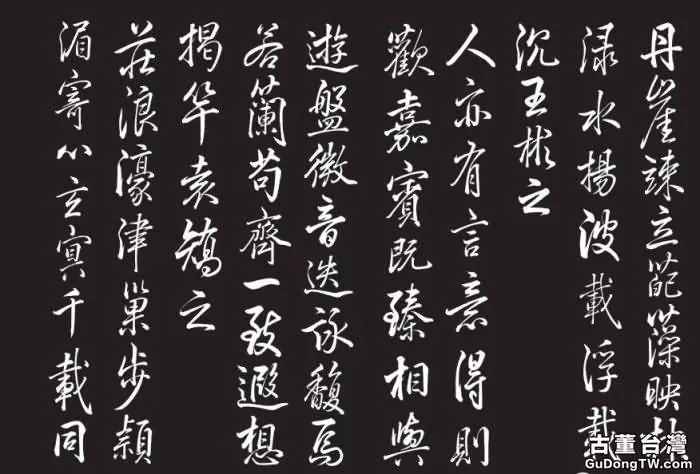 丹崖竦立葩藻映林
渌水揚波載浮載
沉王彬之
人亦有言意得則
歡嘉賓既臻相與
遊盤微音迭詠馥焉
若蘭苟齊一致遐想
揭竿袁矯之
莊浪濠津巢步潁
湄寄心冥千載同
古董台灣
GuDongTW.com